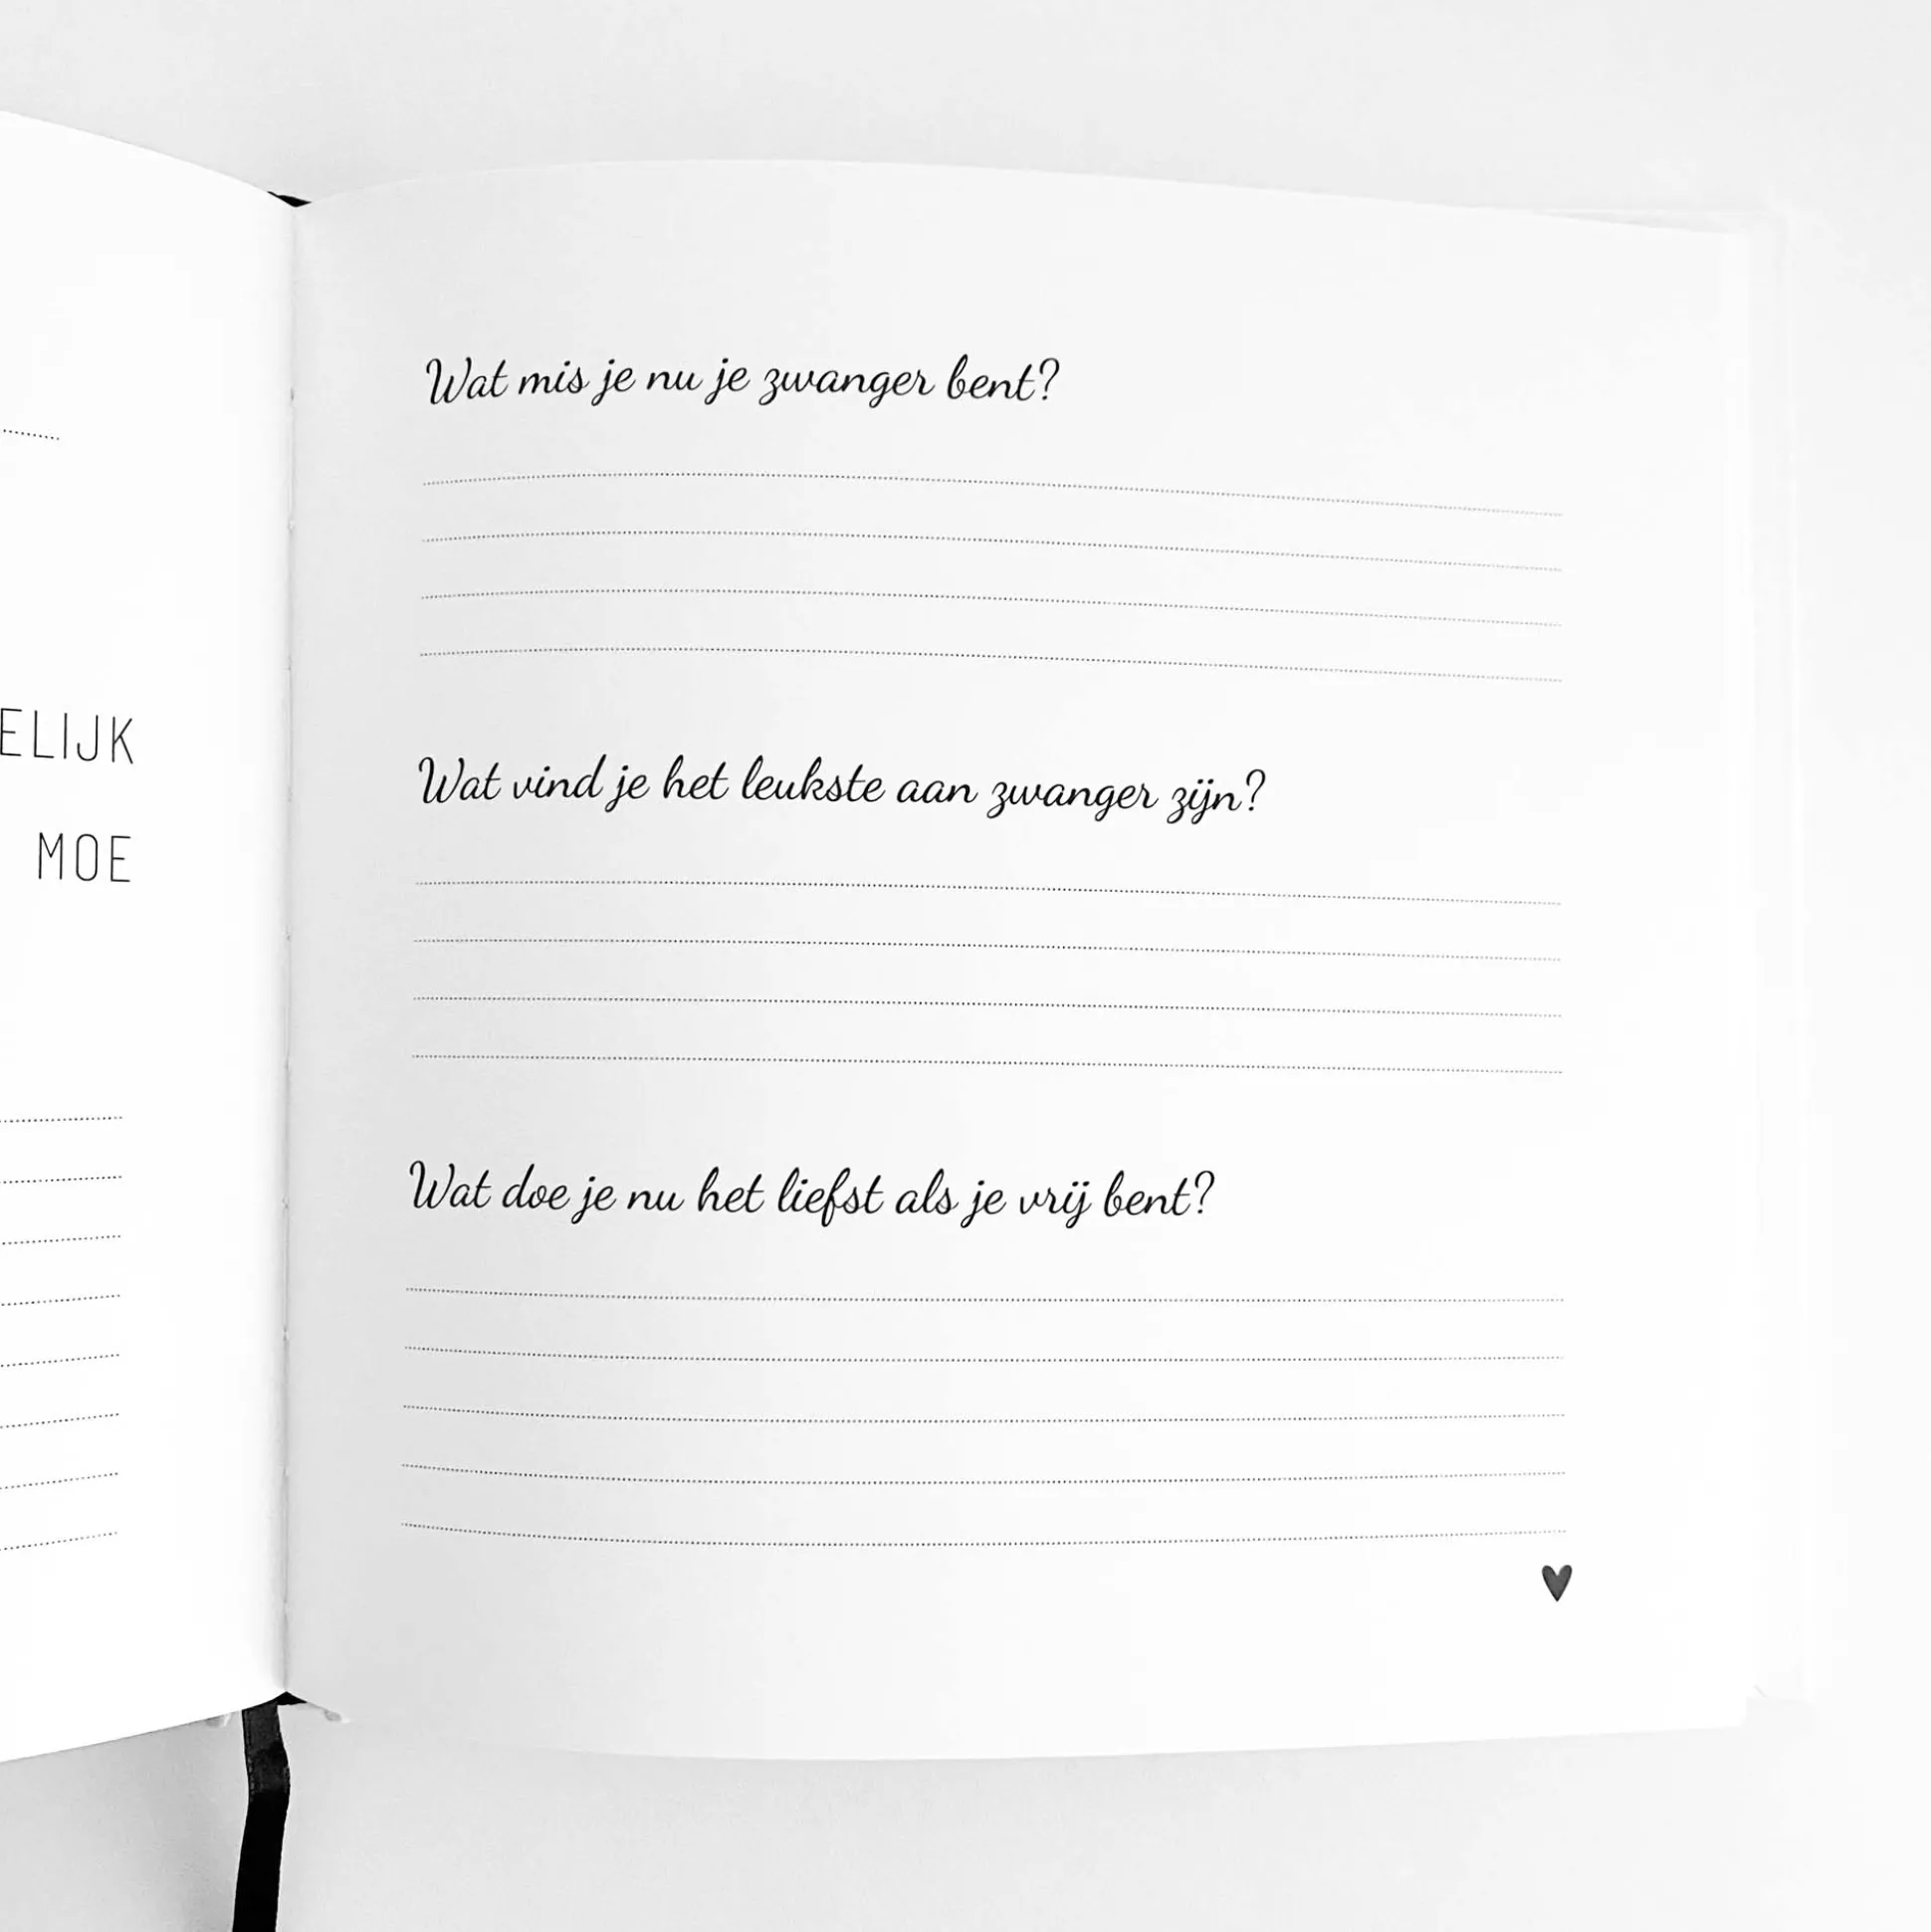 ELIJK
MOE
Wat mis je nu je zwanger bent?
Wat vind je het leukste aan zwanger zijn?
Wat doe je nu het liefst als je vrij bent?